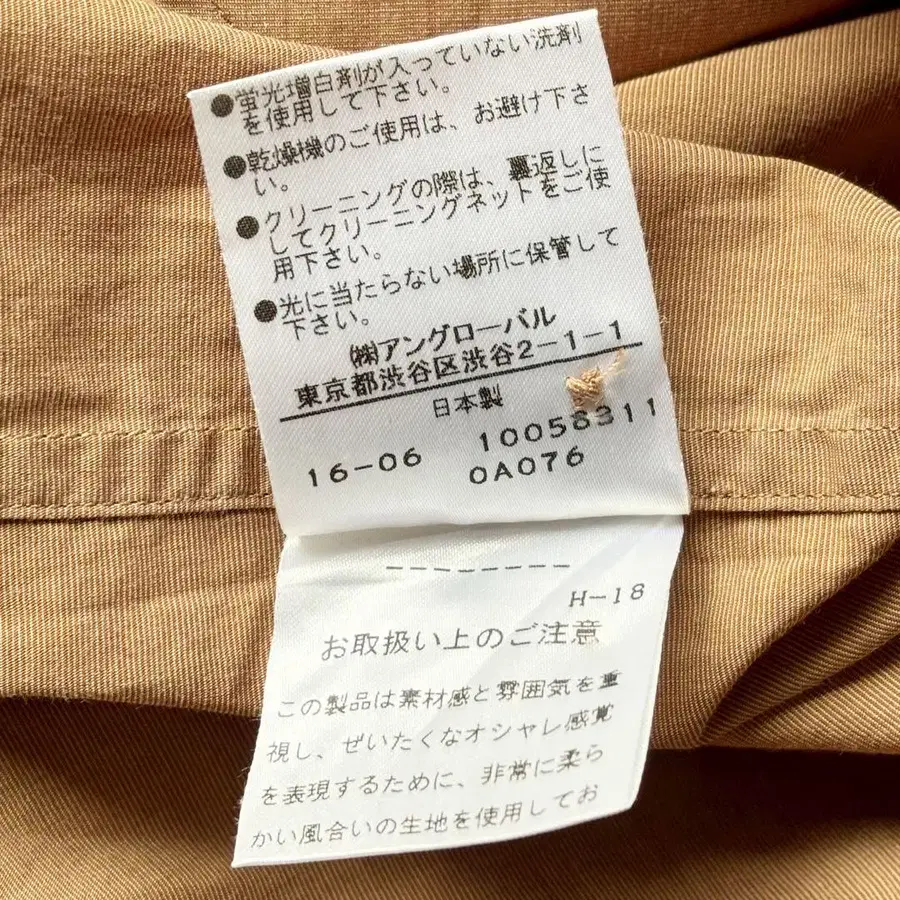 ●蛍光増白剤が入っていない洗剤
を使用して下さい。
●乾燥機のご使用は、お避け下さ
い。
●クリーニングの際は、裏返しに
してクリーニングネットをご使
用下さい。
●光に当たらない場所に保管して
下さい。
㈱アングローバル
東京都渋谷区渋谷2-1-1
日本製
16-06 10058311
0A076
H-18
お取扱い上のご注意
この製品は素材感と雰囲気を重
視し、ぜいたくなオシャレ感覚
を表現するために、非常に柔ら
かい風合いの生地を使用してお